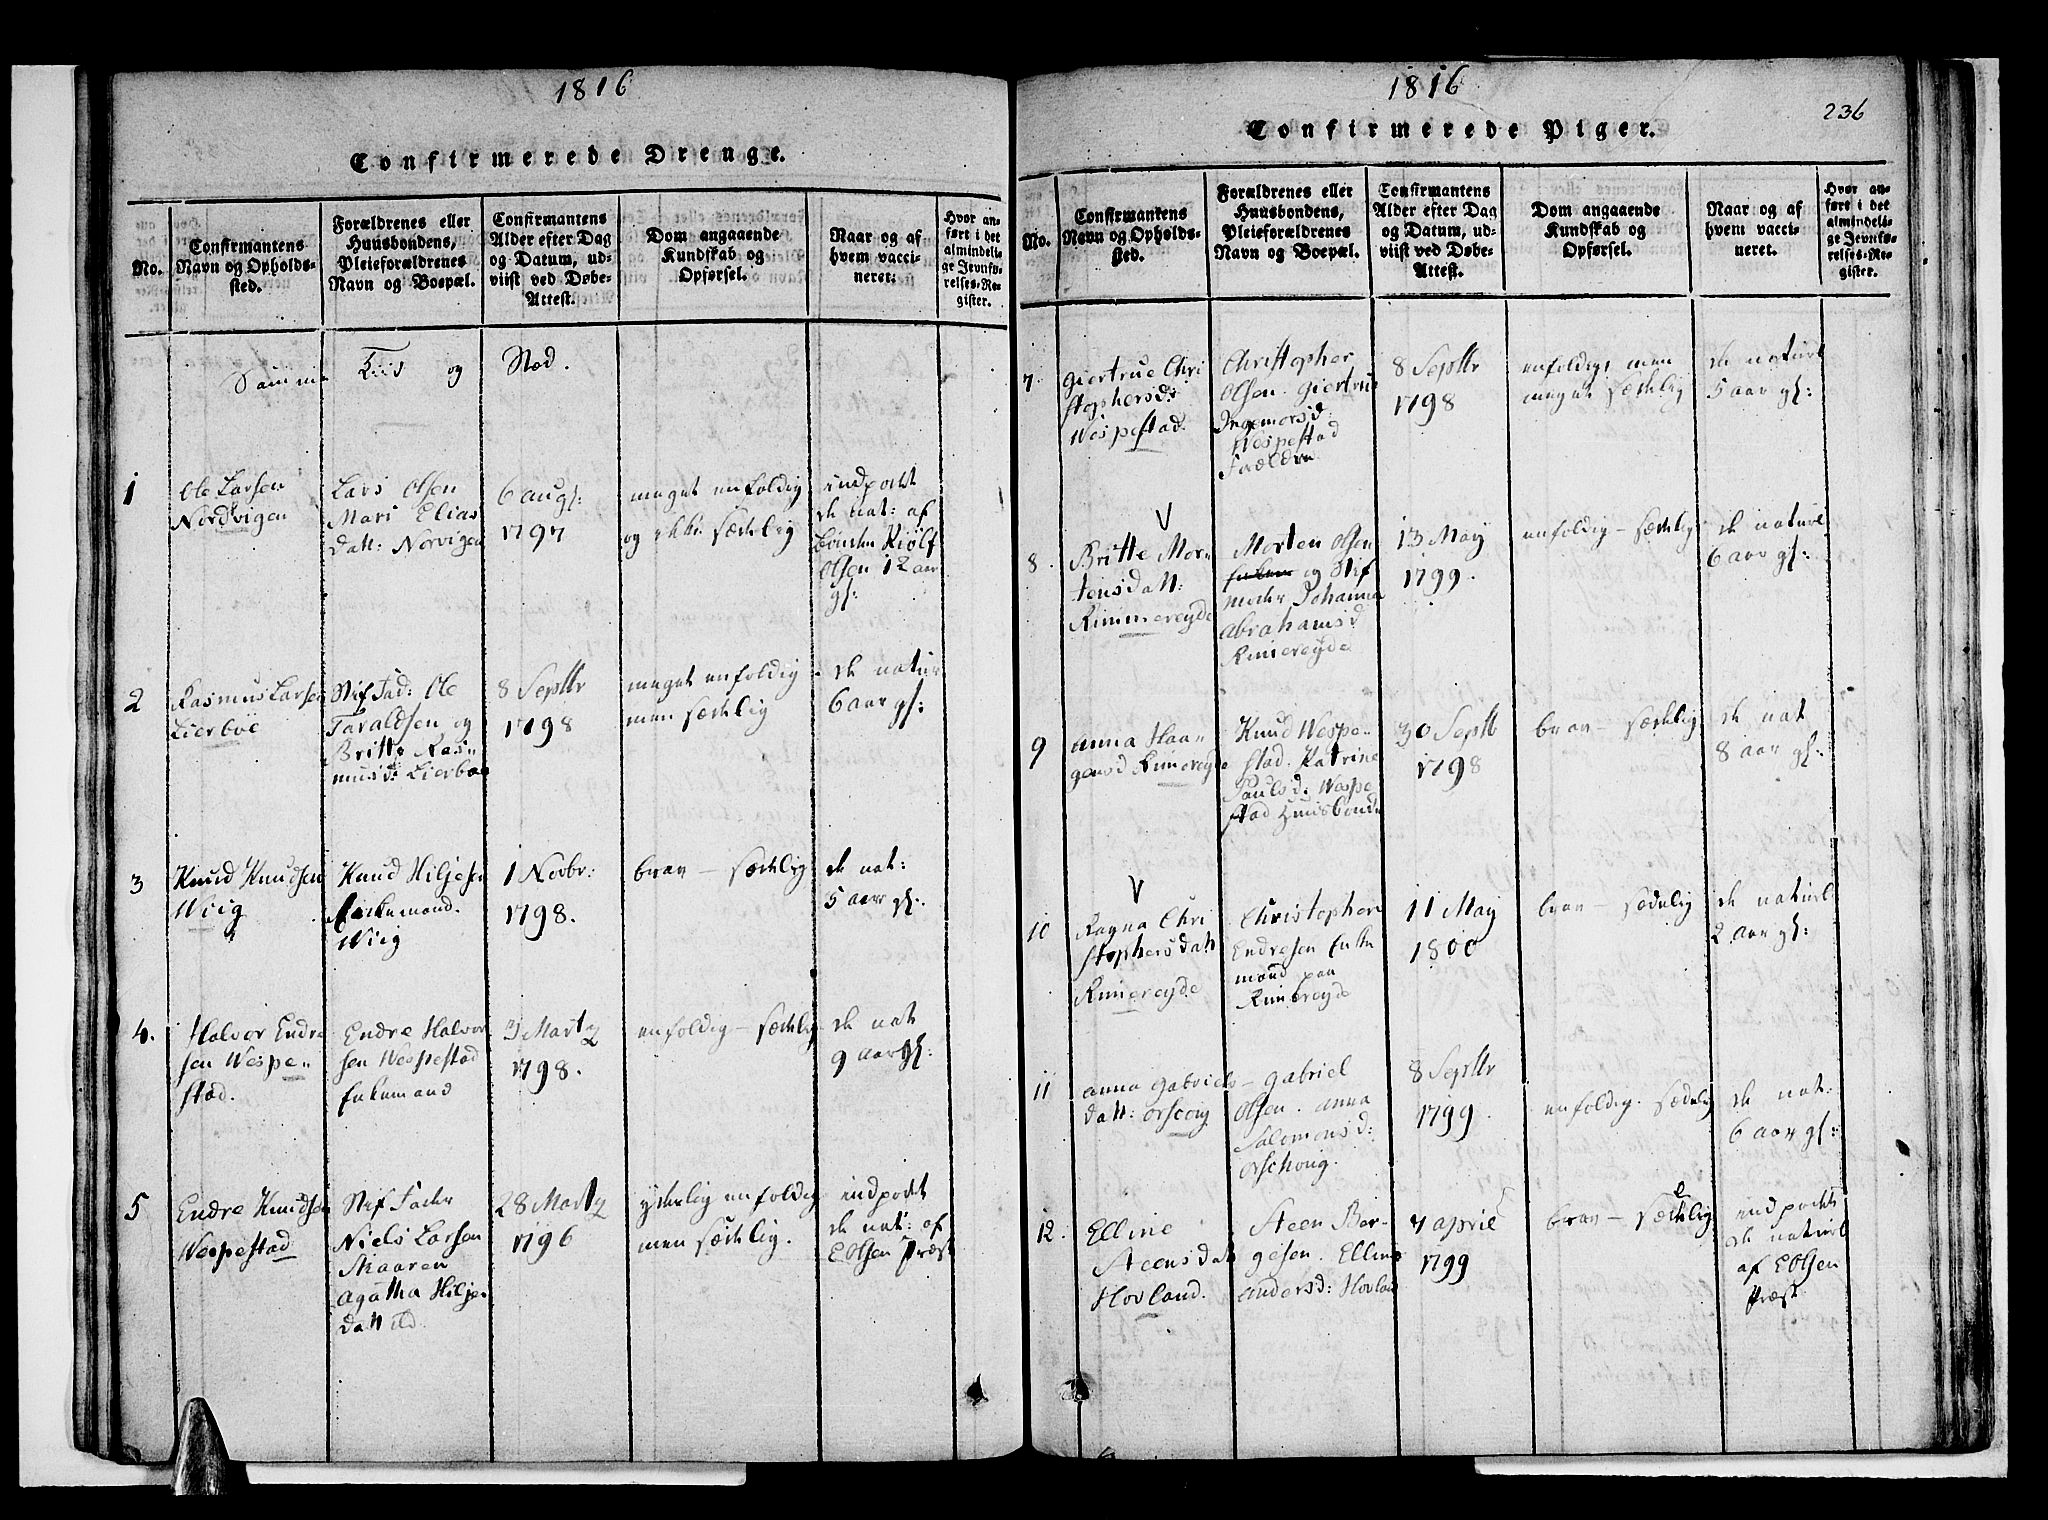 1816
Confirmerede Drenge.
No.
Confirmantens
Navn og Opholds-
sted.
Forældrenes eller
Huusbondens,
Pleieforældrenes
Navn og Boepæl.
Confirmantens
Alder efter Dag
og Datum, ud-
viist ved Døbe-
Attest.
Dom angaaende
Kundskab og
Opførsel.
Naar og af
hvem vacci-
neret.
Hvor an-
ført i det
almindeli-
ge Jevnfø-
relses-Re-
gister.
Samme Tiid og Sted.
1
Ole Larsen
Nordvigen
Lars Olsen
Mari Elias
datt: Norvigen
6 augs:
1797
meget eenfoldig
og ikke sædelig
indpodet
de nat: af
Kiølf
Olsen 12 aar
gl:
2
Rasmus Larsen
Lierboe
Stif Fad: Ole
Taraldsen og
Britte Ras-
musd: Lierboe
8 Septbr
1798
meget enfoldig
men sædelig
de natur
6 aar gl:
3
Knud Knudsen
Wiig
Knud Hiljesen
Enkemand.
Wiig
1 Novbr:
1798.
brav - sædelig
de nat:
5 aar gl:
4.
Halvor Endre
sen Wespe-
stad.
Endre Halvor
sen Wespestad
Enkemand
3 Martz
1798.
enfoldig - sædelig
de nat
9 aar gl:
5
Endre Knudsen
Wespestad
Stif Fader
Niels Larsen
Maaren
Agatha Hilje
datt
28 Martz
1796
yderlig enfoldig
men sædelig.
indpodet
de nat: af
E Olsen Præst
1816
236
Confirmerede Piger.
No.
Confirmantens
Navn og Opholds-
sted.
Forældrenes eller
Huusbondens,
Pleieforældrenes
Navn og Boepæl.
Confirmantens
Alder efter Dag
og Datum, ud-
viist ved Døbe-
Attest.
Dom angaaende
Kundskab og
Opførsel.
Naar og af
hvem vacci-
neret.
Hvor an-
ført i det
almindeli-
ge Jevnfø-
relses-Re-
gister.
7
Giertrue Chri
stophersd:
Wespestad.
Christopher
Olsen. Giertrue
Ingemorsd:
Wespestad
8 Septbr
1798
enfoldig men
meget sædelig
de naturl
5 aar gl:
V
8.
Britte Mor-
tensdatt:
Rimmereyde
Morten Olsen
og Stif
moder Johanna
Abrahamsd
Rimereyde
13 May
1799.
enfoldig - sædelig
de naturl
6 aar gl:
9
Anna Haa-
gensd Rimereyde
Knud Wespe-
stad. Katrine
Paulsd: Wespe
stad Huusbonde
30 Septb
1798
brav - sædelig
de nat
8 aar gl:
V
10
Ragna Chri
stophersdatt
Rimereyde
Christopher
Endresen Enke
mand paa
Rimereyde
11 May
1800
brav - sædelig
de naturl
2 aar gl:
11
Anna Gabriels-
datt: Orscong
Gabriel
Olsen. Anna
Salomonsd:
Orschong.
8 Septbr
1799.
enfoldig. sædelig
de nat:
6 aar gl:
12.
Elline
Steensdatt
Hovland.
Steen Bør-
gesen. Elline
Andersd: Hovland
7 april
1799
brav - sædelig
indpodet
de naturl
af E Olsen
Præst